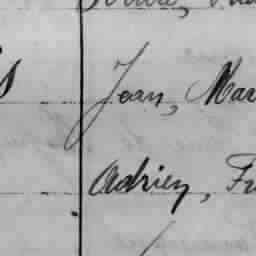 Jean, Mar
Adrien, Fr